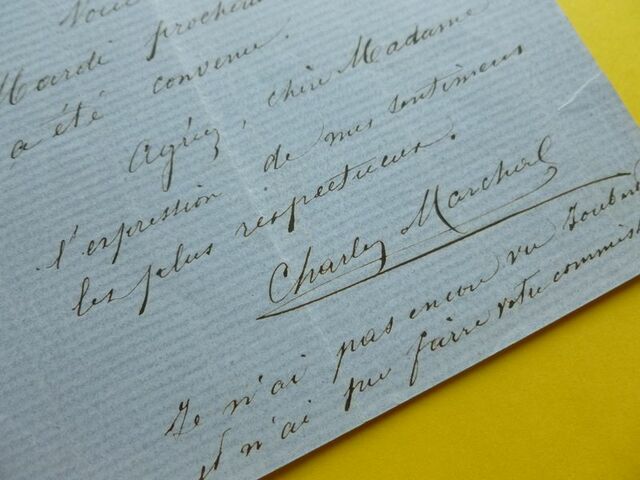 Vous
Mardi prochain
a été convenu.
Agréez, chère Madame
l'expression de mes sentimens
les plus respectueux.
Charles Marchal
Je n'ai pas encore vu Joubert
et n'ai pu faire votre commiss